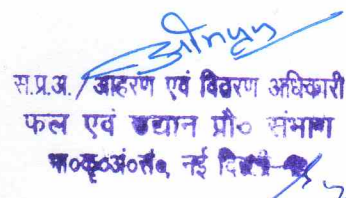 स.प्र.अ. / आहरण एवं वितरण अधिकारी
फल एवं उद्यान प्रौ० संभाग
भा०कृ०अं०सं०, नई दिल्ली